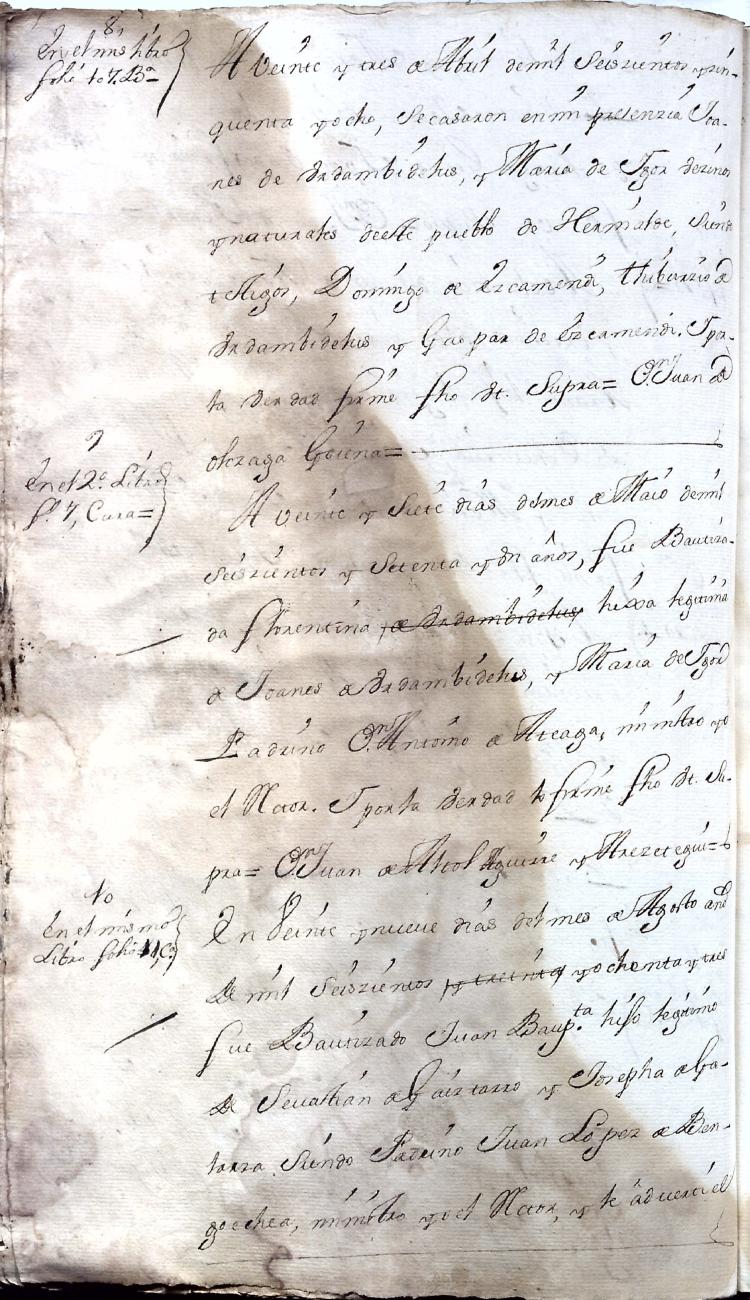 8,
En el mis. libro
folio 107. Ba
A veinte y tres de Abril de mil Seiszientos y zin-
quenta y ocho, Se casaron en mi presenzia Joa-
nes de Urdambidelus, y Maria de Igor vezinos
y naturales de este pueblo de Hernialde, Siendo
testigos, Domingo de Ezcamendi, thiburzio de
Urdambidelus y Gaspar de Ezcamendi. I por
la verdad firme fho Ut. Supra= Dn Juan de
olozaga Goiena=
9
En el 2º Libro
fº 7, Cara=
A veinte y Siete dias del mes de Maio de mil
Seiszientos y Setenta y Un años, fue Bautiza-
da florentina de Urdambidelus hixa legitima
de Joanes de Urdambidelus, y Maria de Igor
Padrino Dn Antonio de Ateaga, ministro yo
el Rector. I por la verdad lo firme fho Ut. Su-
pra= Dn Juan de Atol Aguirre y Arezetegui=
10
En el mismo
Libro folio 11, Ca
En Veinte y nueve dias del mes de Agosto año
de mil Seiszientos y treinta y ochenta y tres
fue Bautizado Juan Baup.ta hijo legitimo
de Sevastian de Gaiztarro y Josepha de Ga-
larza Siendo Padrino Juan López de Ben-
goechea, ministro yo el Rector, y le advertí el